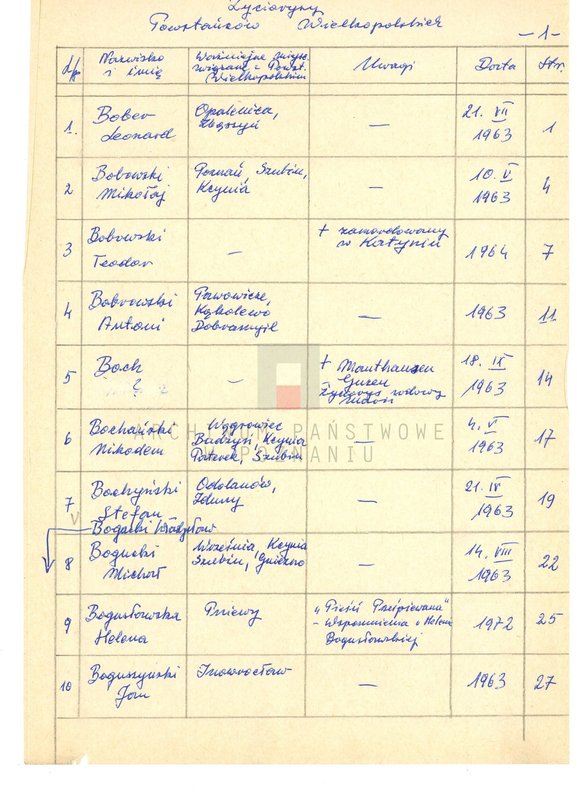 Życiorysy
Powstańców Wielkopolskich
-1-
L/p Nazwisko i imię Ważniejsze miejsc. związane z Powst. Wielkopolskim Uwagi Data Str.
1. Bober Leonard Opalenica, Zbąszyń — 21. VII 1963 1
2 Bobowski Mikołaj Poznań, Szubin, Kcynia — 10. V 1963 4
3 Bobowski Teodor — + zamordowany w Katyniu 1964 7
4 Bobrowski Antoni Kąkolewo — 1963 11
5 Boch — + Mauthausen Gusen Życiorys 18. IX 1963 14
6 Bochański Nikodem Wągrowiec Budzyń, Kcynia Paterek, Szubin — 4. VI 1963 17
7 Bochyński Stefan Odolanów, Zduny — 21. IV 1963 19
V Bogacki Władysław
8 Bogucki Michał Września, Kcynia Szubin, Gniezno — 14. VIII 1963 22
9 Bogusławska Helena Pniewy „Pieśń Prześpiewana" - wspomnienia o Helenie Bogusławskiej 1972 25
10 Boguszyński Jan Inowrocław — 1963 27
ARCHIWUM PAŃSTWOWE
W POZNANIU